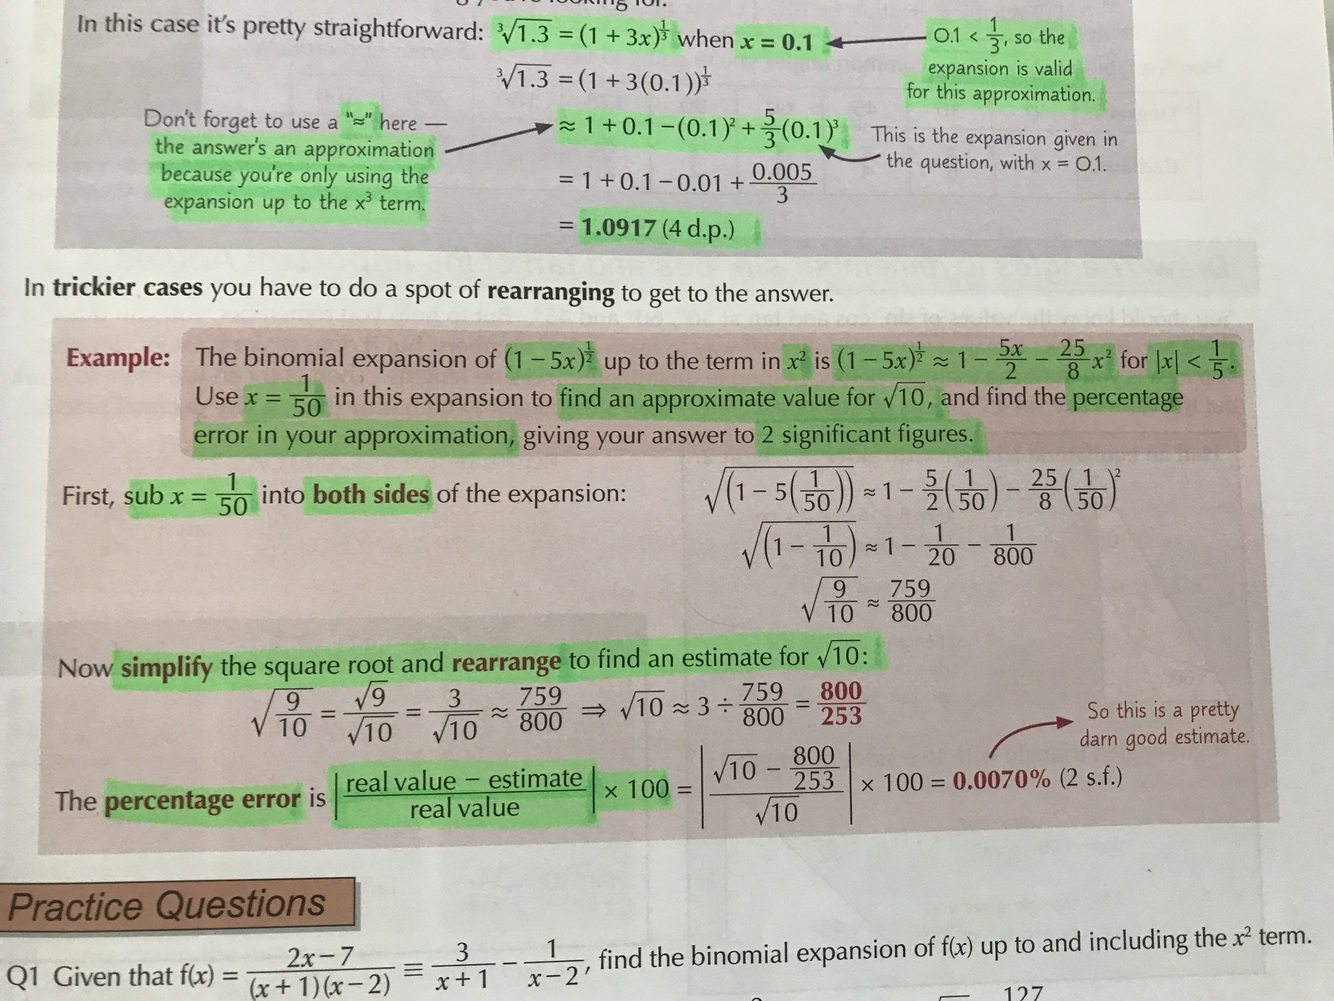 you're looking for.
In this case it's pretty straightforward: ∛1.3 = (1 + 3x)^(1/3) when x = 0.1
0.1 < 1/3, so the
expansion is valid
for this approximation.
∛1.3 = (1 + 3(0.1))^(1/3)
Don't forget to use a "≈" here —
the answer's an approximation
because you're only using the
expansion up to the x³ term.
≈ 1 + 0.1 − (0.1)² + 5/3(0.1)³
This is the expansion given in
the question, with x = 0.1.
= 1 + 0.1 − 0.01 + 0.005/3
= 1.0917 (4 d.p.)
In trickier cases you have to do a spot of rearranging to get to the answer.
Example: The binomial expansion of (1 − 5x)^(1/2) up to the term in x² is (1 − 5x)^(1/2) ≈ 1 − 5x/2 − 25/8 x² for |x| < 1/5.
Use x = 1/50 in this expansion to find an approximate value for √10, and find the percentage
error in your approximation, giving your answer to 2 significant figures.
First, sub x = 1/50 into both sides of the expansion: √(1 − 5(1/50)) ≈ 1 − 5/2(1/50) − 25/8(1/50)²
√(1 − 1/10) ≈ 1 − 1/20 − 1/800
√(9/10) ≈ 759/800
Now simplify the square root and rearrange to find an estimate for √10:
√(9/10) = √9/√10 = 3/√10 ≈ 759/800 ⇒ √10 ≈ 3 ÷ 759/800 = 800/253
So this is a pretty
darn good estimate.
The percentage error is |(real value − estimate)/real value| × 100 = |(√10 − 800/253)/√10| × 100 = 0.0070% (2 s.f.)
Practice Questions
Q1 Given that f(x) = (2x − 7)/((x + 1)(x − 2)) ≡ 3/(x + 1) − 1/(x − 2), find the binomial expansion of f(x) up to and including the x² term.
127